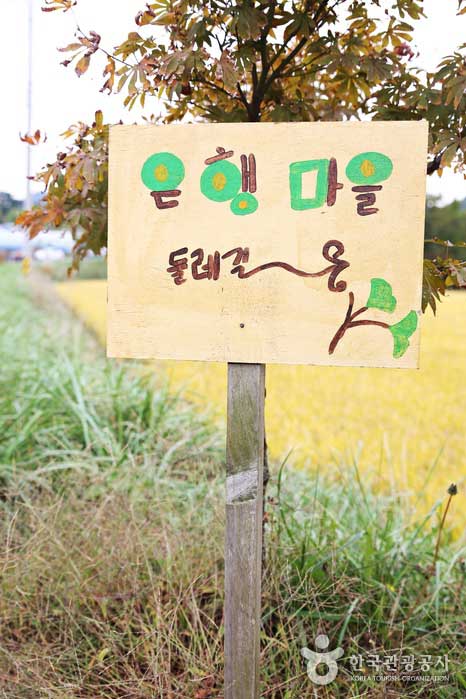 은행 마을
둘레길
한국관광공사
KOREA TOURISM ORGANIZATION